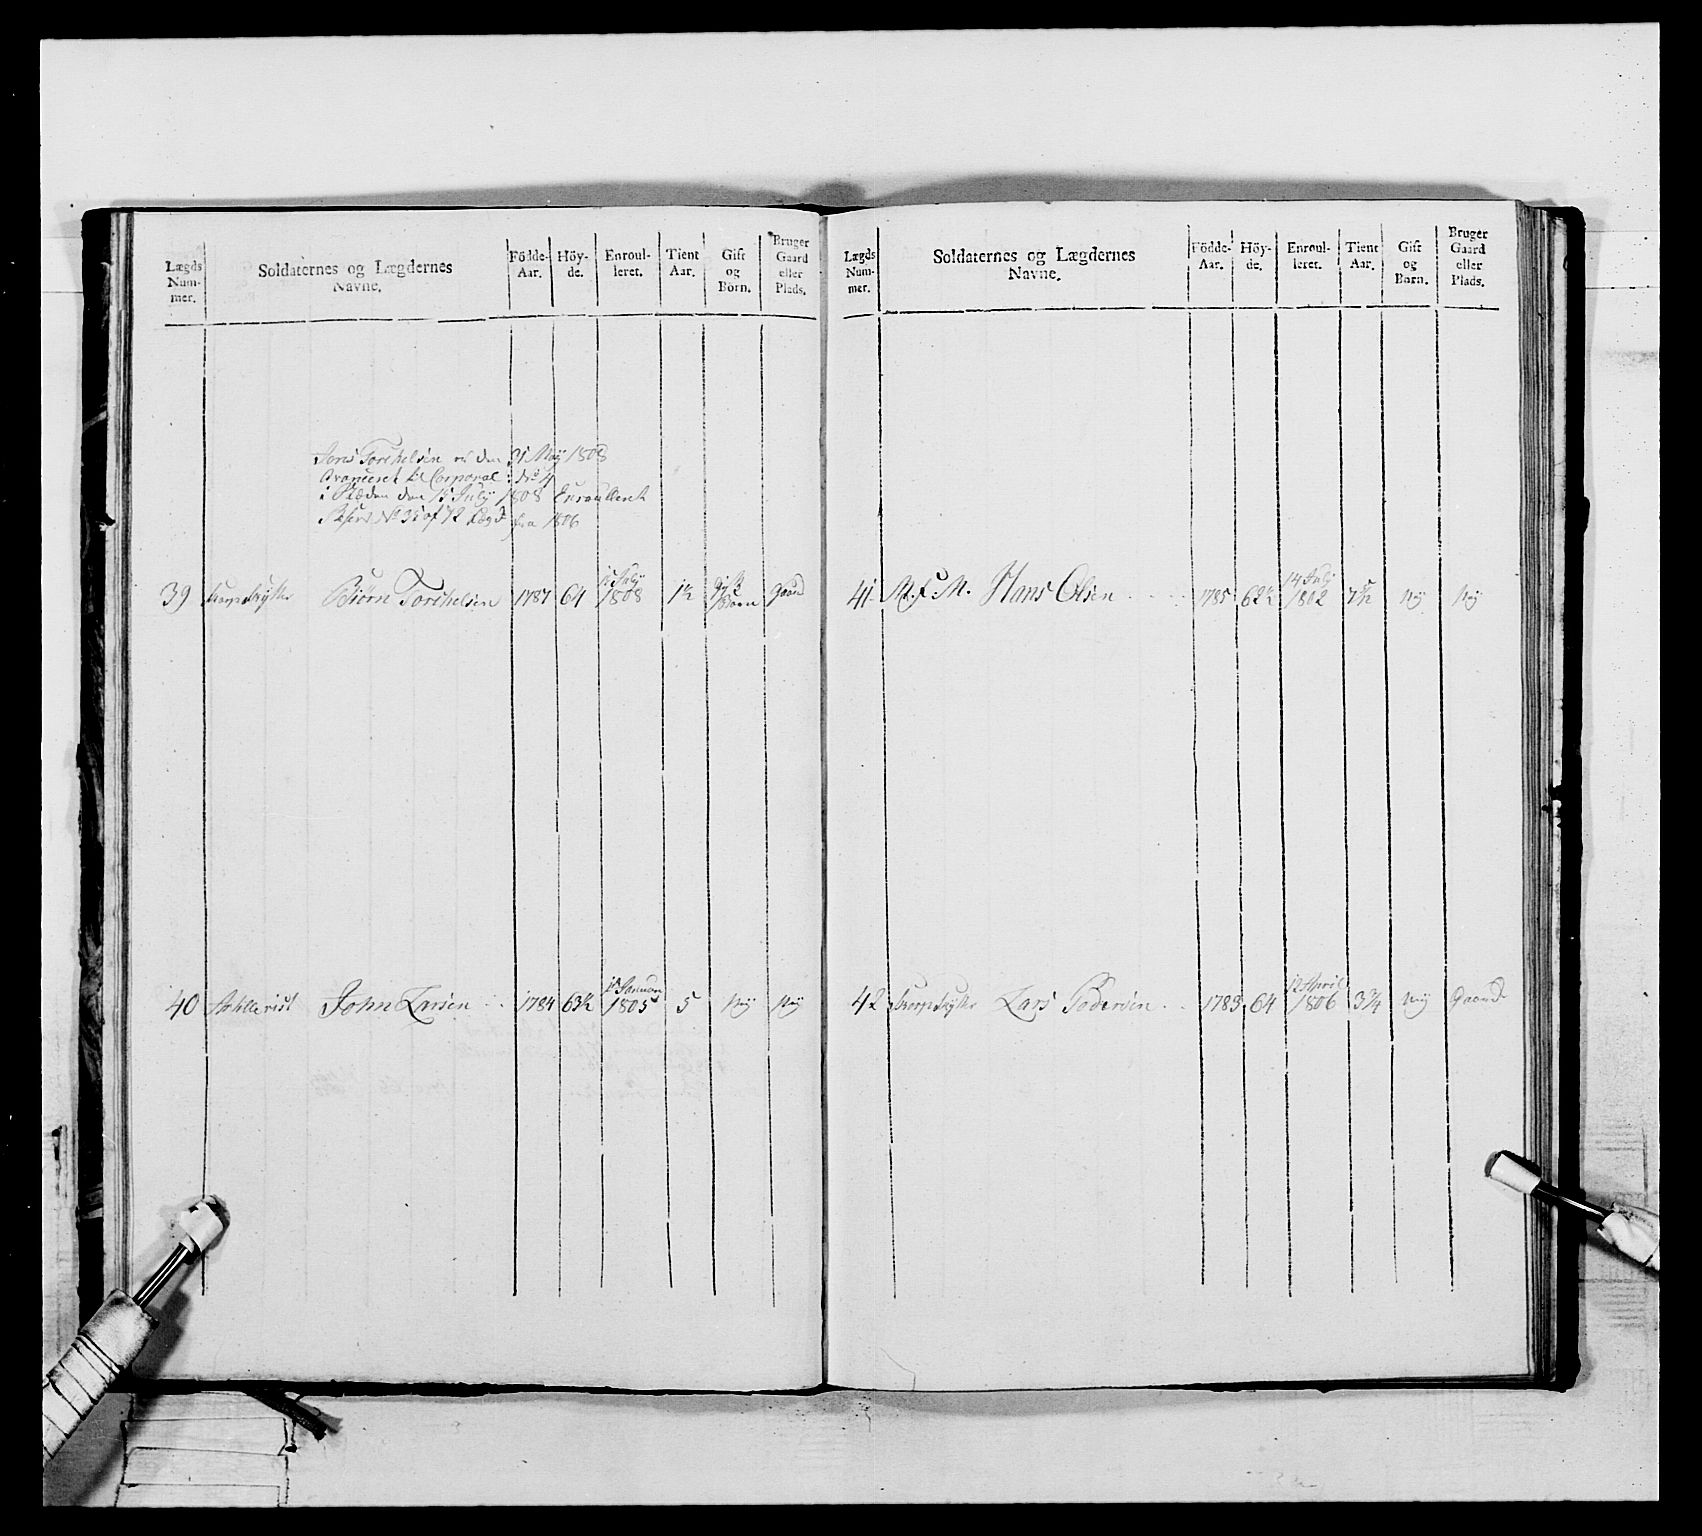 Lægds Num- mer.
Soldaternes og Lægdernes Navne.
Födde- Aar.
Höy- de.
Enroul- leret.
Tient Aar.
Gift og Börn.
Bruger Gaard eller Plads.
Torchelsen er den 31 May 1808
Avanceret til Corporal : No 4
i Stæden den 15 July 1808 Enroulleret
Reserv No 35 af 72 Lægd fra 1806
15 July
39 Skarpskytter Biörn Torchelsen 1787 64 1808 1½ gift 1 Barn gaard
18 Januari
40 Artillerist John Larsen 1784 63½ 1805 5 Nej Nej
Lægds Num- mer.
Soldaternes og Lægdernes Navne.
Födde- Aar.
Höy- de.
Enroul- leret.
Tient Aar.
Gift og Börn.
Bruger Gaard eller Plads.
14 July
41 Hans Olsen 1785 62½ 1802 Nej Nej
12 April
42 Skarpskytter Lars Pedersen 1783 64 1806 3¾ Nej Gaard